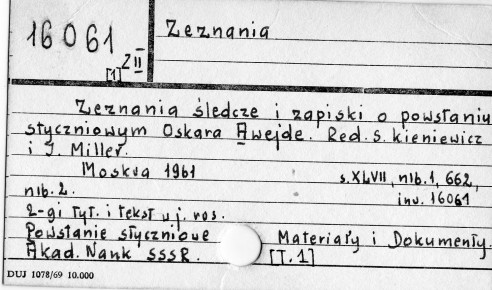 16061
Zeznania
[1] Z II
Zeznania śledcze i zapiski o powstaniu
styczniowym Oskara Awejde. Red. S. Kieniewicz
i J. Miller.
Moskva 1961 s. XLVII, nlb. 1, 662,
nlb. 2. inv. 16061
2-gi tyt. i tekst w j. ros.
Powstanie styczniowe Materiały i Dokumenty.
Akad. Nank SSSR. [T. 1]
DUJ 1078/69 10.000